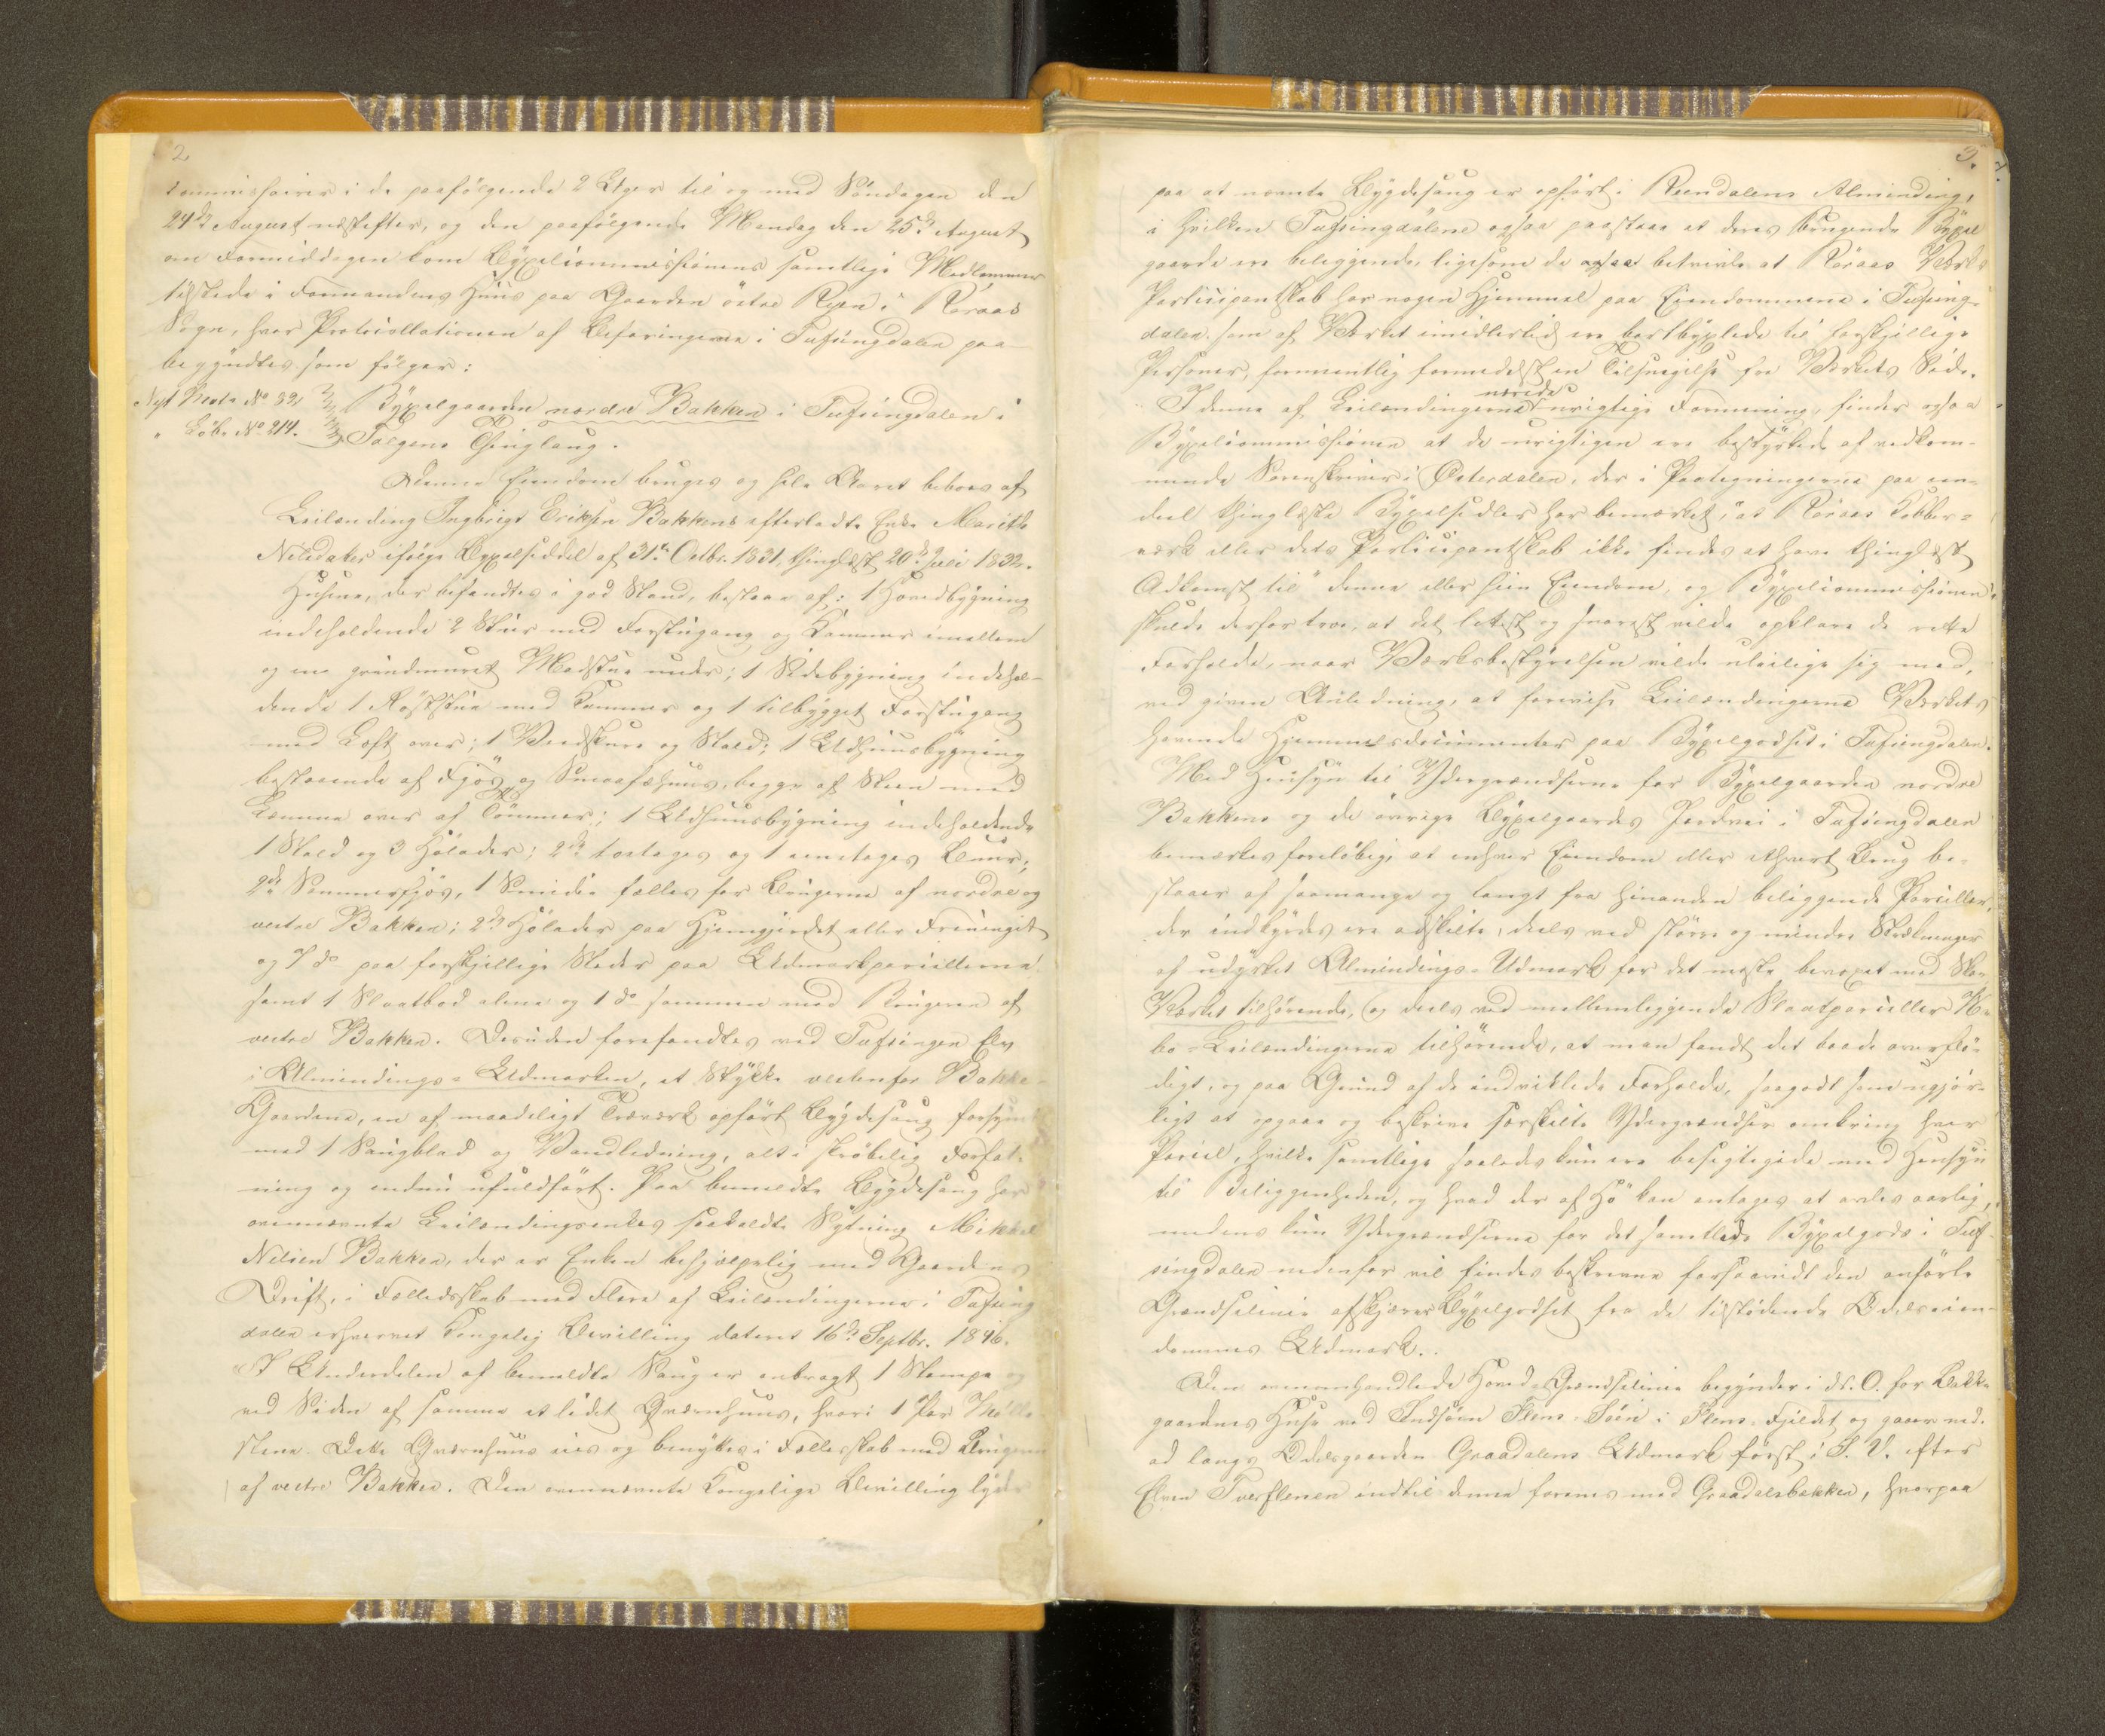 2.
Commissairer i de paafølgende 2 Uger til og med Søndagen den
24de August næstefter, og den paafølgende Mandag den 25de August
om Formiddagen kom Byxelcommissionens samtlige Medlemmer
tilstede i Formandens Huus paa Gaarden östre Ryen i Röraas
Sogn, hvor Protocollationen af Befaringerne i Tufsingdalen paa-
begyndtes som følger:
Nyt Matr. No 32, Byxelgaarden nordre Bakken i Tufsingdalen i
" Löb. No 214. Tolgens Thinglaug.
Denne Eiendom bruges og hele Aaret beboes af
Leilænding Ingbrigt Eriksen Bakkens efterladte Enke Marith
Nilsdatter ifølge Byxelseddel af 31te Octbr. 1831, thinglæst 20de Juli 1832.
Husene, der befandtes i god Stand, bestaae af: 1 Hovedbygning
indeholdende 2 Stuer med Forstugang og Kammer imellem
og en grundmuret Madstue under; 1 Sidebygning indehol-
dende 1 Röststue med Kammer og 1 tilbygget Forstugang
med Loft over; 1 Vedskuur og Stald; 1 Udhuusbygning
bestaaende af Fjös og Smaafæhuus, begge af Steen med
Lemme over af Tömmer; 1 Udhuusbygning indeholdende
1 Stald og 3 Hölader; 2de toetages og 1 eenetages Buur;
2de Sommerfjös, 1 Smidie fælles for Brugerne af nordre og
vestre Bakken; 2de Hölader paa Hjemgjerdet eller
og 7 do paa forskjellige Steder paa Udmarksparcellerne
samt 1 Slaatbod alene og 1 do sammen med Brugeren af
vestre Bakken. Desuden forefandtes ved Tufsingen Elv
i Almindings-Udmarken, et Stykke vestenfor Bakke-
Gaardene, en af maadeligt Træværk opført Bygdesaug forsynet
med 1 Saugblad og Vandledning, alt i skröbelig Forfat-
ning og endnu ufuldført. Paa bemeldte Bygdesaug har
ovennævnte Leilændingsenkes saakaldte Sytning Mikkel
Nilsen Bakken, der er Enken behjælpelig med Gaardens
Drift, i Fælledsskab med Flere af Leilændingerne i Tufsing-
dalen erhvervet Kongelig Bevilling dateret 16de Septbr. 1846.
I Underdelen af bemeldte Saug er anbragt 1 Stampe og
ved Siden af samme et lidet Qværnhuus, hvori 1 Par Mølle-
stene. Dette Qværnhuus eies og benyttes i Fælleskab med Brugeren
af vestre Bakken. Den ovennævnte Kongelige Bevilling lyder
3.
paa at nævnte Bygdesaug er opført i Reendalens Alminding,
i hvilken Tufsingdölerne ogsaa paastaae at deres brugende Byxel
gaarde ere beliggende, ligesom de ogsaa betvivle at Röraas Verks
Participantskab har nogen Hjemmel paa Eiendommene i Tufsing-
dalen, som af Verket imidlertid ere bortbyxlede til forskjellige
Personer, formentlig formedelst en Tilsnigelse fra Verkets Side.
I denne af Leilændingerne nærede urigtige Formening, finder ogsaa
Byxelcommissionen at de urigtigen ere bestyrkede af vedkom-
mende Sorenskriver i Østerdalen, der i Paategningerne paa een-
deel thinglæste Byxelsedler har bemærket, "at Röraas Kobber-
værk eller dets Participantskab ikke findes at have thinglæst
Adkomst til" denne eller hiin Eiendom, og Byxelcommissionen
skulde derfor troe, at det lettest og snarest vilde opklare de rette
Forholde, naar Værksbestyrelsen vilde uleilige sig med,
ved given Anledning, at forevise Leilændingerne Verkets
havende Hjemmelsdocumenter paa Byxelgodset i Tufsingdalen.
Med Hensyn til Ydergrændserne for Byxelgaarden nordre
Bakkens og de övrige Byxelgaardes Jordvei i Tufsingdalen
bemærkes foreløbig, at enhver Eiendom eller ethvert Brug be-
staaer af saamange og langt fra hinanden beliggende Parceller,
der indbyrdes ere adskilte, deels ved større og mindre Strækninger
af udyrket Almindings-Udmark for det meste bevoxet med Skov
Værket tilhørende, og deels ved mellemliggende Slaatparceller
Leilændingerne tilhørende, at man fandt det baade overflø-
digt, og paa Grund af de indviklede Forholde, saagodt som ugjør-
ligt at opgaae og beskrive særskilte Ydergrændser omkring hver
Parcel, hvilke samtlige saaledes kun ere besigtigede med Hensyn
til Beliggenheden, og hvad der af Hö kan antages at avles aarlig,
medens kun Ydergrændserne for det samtlede Byxelgods i Tuf-
singdalen nedenfor vil findes beskrevne forsaavidt den anførte
Grændselinie afskjærer Byxelgodset fra de tilstødende Odelseien-
dommes Udmark.
Den ovenomhandlede Hoved-Grændselinie begynder i O. for Bakke
gaardenes Huse ved Indsöen Flens-Söen i Flens-Fjeldet, og gaaer ned-
ad langs Odelsgaarden Graadalens Udmark først i S. V. efter
Elven Tverflenen indtil denne forenes med Graadalsbækken, hvorpaa